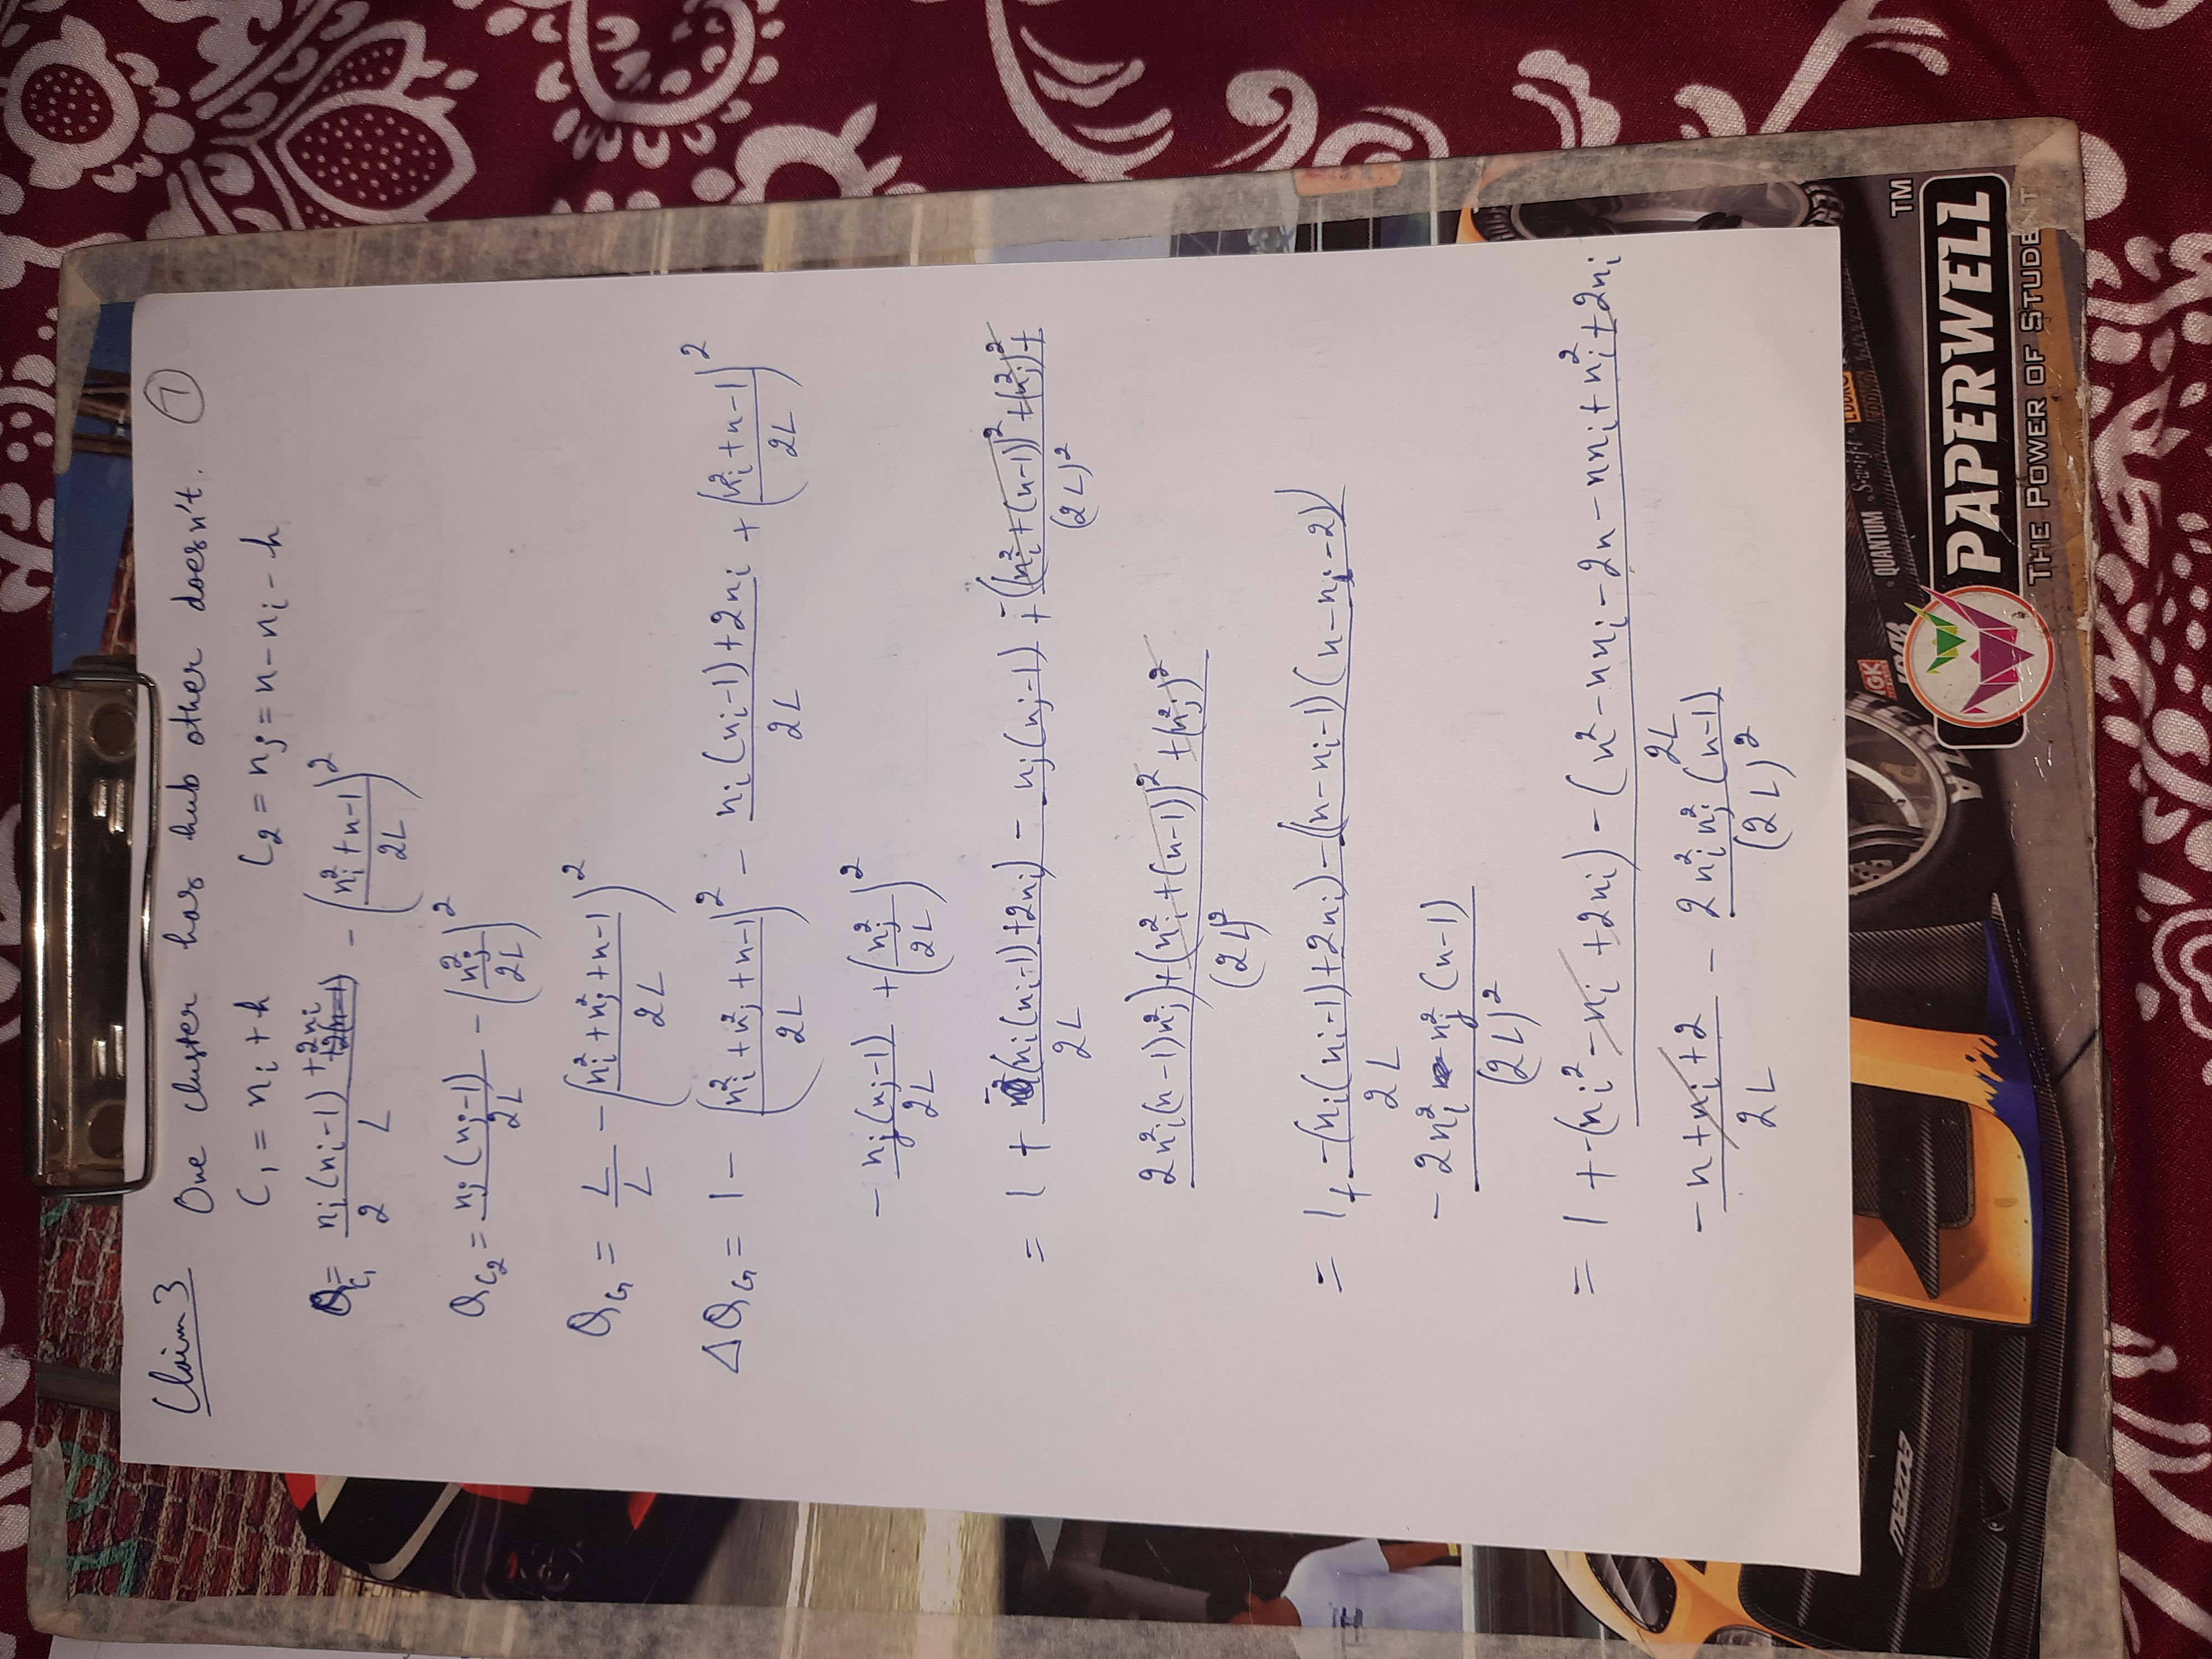 Claim 3 One cluster has hub other doesn't. 7
C₁ = nᵢ + h C₂ = nⱼ = n - nᵢ - h
Q_C₁ = (nᵢ(nᵢ-1) + 2nᵢ)/(2L) - ((nᵢ² + n - 1)/(2L))²
Q_C₂ = nⱼ(nⱼ-1)/(2L) - (nⱼ²/(2L))²
Q_G = L/L - ((nᵢ² + nⱼ² + n - 1)/(2L))²
ΔQ_G = 1 - ((nᵢ² + nⱼ² + n - 1)/(2L))² - (nᵢ(nᵢ-1) + 2nᵢ)/(2L) + ((nᵢ² + n - 1)/(2L))²
- nⱼ(nⱼ-1)/(2L) + (nⱼ²/(2L))²
= 1 + (-(nᵢ(nᵢ-1) + 2nᵢ) - nⱼ(nⱼ-1))/(2L) + (-((nᵢ² + (n-1))² + (nⱼ²)² +)/(2L)²
(2nᵢ²(n-1)nⱼ²) + (nᵢ² + (n-1))² + (nⱼ²)²)/(2L)²
= 1 + (-(nᵢ(nᵢ-1) + 2nᵢ) - ((n-nᵢ-1)(n-nᵢ-2)))/(2L)
- 2nᵢ² nⱼ² (n-1)/(2L)²
= 1 + (-(nᵢ² - nᵢ + 2nᵢ) - (n² - nnᵢ - 2n - nnᵢ + nᵢ² + 2nᵢ)/(2L)
(-n + nᵢ + 2)/(2L) - 2nᵢ² nⱼ² (n-1)/(2L)²
mazda
NGK
QUANTUM
Swift
PAPERWELL TM
THE POWER OF STUDENT